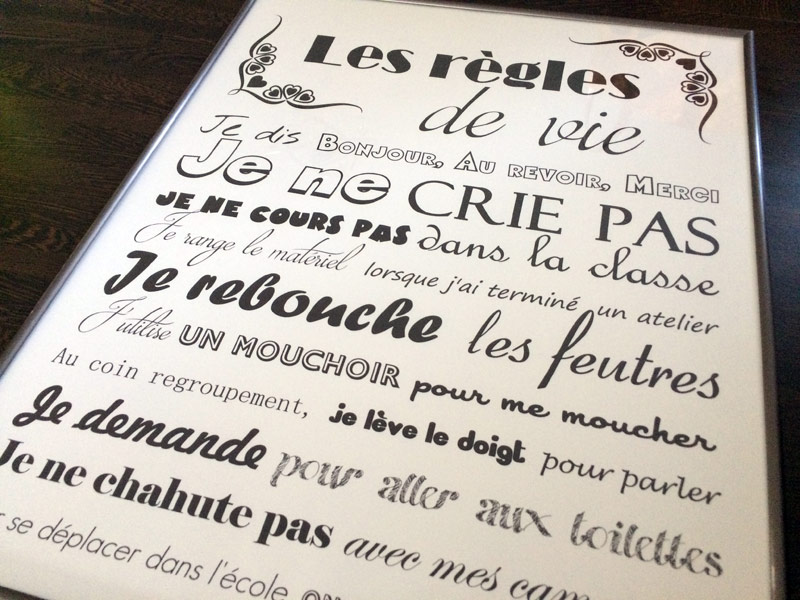 Les règles
de vie
Je dis BONJOUR, AU REVOIR, MERCI
Je ne CRIE PAS
JE NE COURS PAS dans la classe
Je range le matériel lorsque j'ai terminé un atelier
Je rebouche les feutres
J'utilise UN MOUCHOIR pour me moucher
Au coin regroupement, je lève le doigt pour parler
Je demande pour aller aux toilettes
Je ne chahute pas avec mes
se déplacer dans l'école